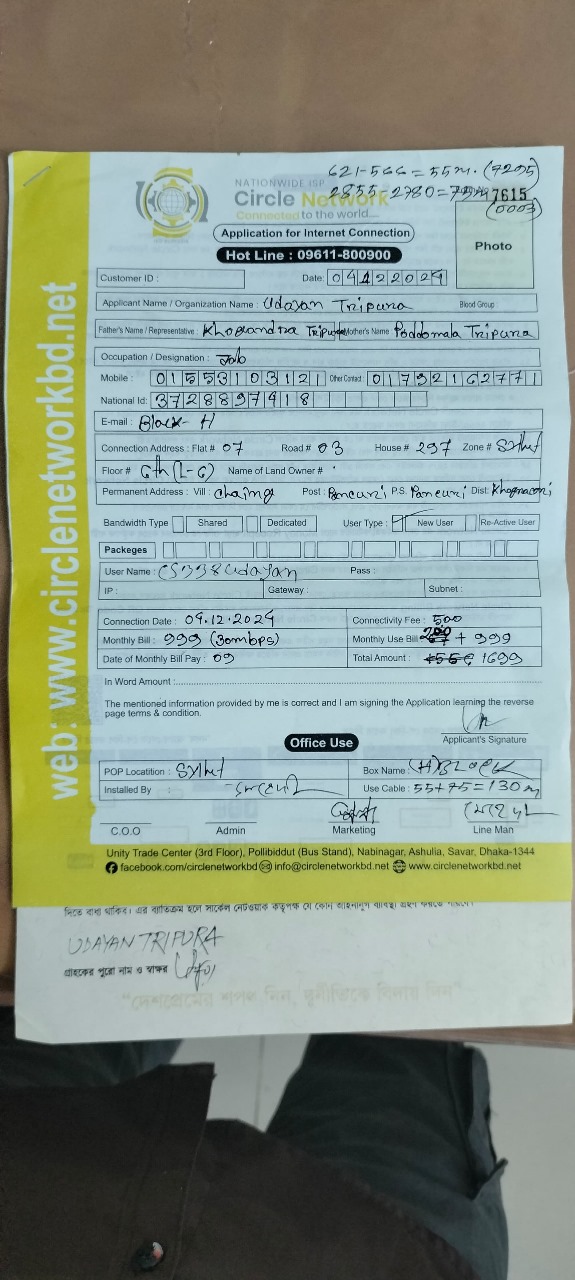 621-566 = 55m. (7205)
2855-2780=75m 7615
(0003)
NATIONWIDE ISP
Circle Network
Connected to the world....
Application for Internet Connection
Hot Line : 09611-800900
Photo
Customer ID : Date: 04122024
Applicant Name / Organization Name : Udayan Tripura Blood Group :
Father's Name / Representative : Tripura Mother's Name Poddomala Tripura
Occupation / Designation : Job
Mobile : 01553103121 Other Contact : 01732162771
National Id: 3728897418
E-mail : Block- H
Connection Address : Flat # 07 Road # 03 House # 297 Zone # Sylhet
Floor # 6th (L-6) Name of Land Owner #
Permanent Address : Vill : Post : P.S. Dist:
Bandwidth Type Shared Dedicated User Type : New User Re-Active User
Packeges
User Name : CS338Udayan Pass :
IP : Gateway : Subnet :
Connection Date : 04.12.2024 Connectivity Fee : 500
Monthly Bill : 999 (30mbps) Monthly Use Bill 200 + 999
Date of Monthly Bill Pay : 09 Total Amount : 1699
In Word Amount :
The mentioned information provided by me is correct and I am signing the Application learning the reverse
page terms & condition.
Applicant's Signature
Office Use
POP Locatition : Sylhet Box Name : (H) BLOCK
Installed By : Use Cable : 55+75=130m
C.O.O Admin Marketing Line Man
Unity Trade Center (3rd Floor), Pollibiddut (Bus Stand), Nabinagar, Ashulia, Savar, Dhaka-1344
facebook.com/circlenetworkbd info@circlenetworkbd.net www.circlenetworkbd.net
web: www.circlenetworkbd.net
দিতে বাধ্য থাকিব। এর ব্যতিক্রম হলে সার্কেল নেটওয়ার্ক কতৃপক্ষ যে কোন আইনানুগ ব্যবস্থা গ্রহণ করতে পারবে।
UDAYAN TRIPURA
গ্রাহকের পুরো নাম ও স্বাক্ষর
"দেশপ্রেমের শপথ নিন, দুর্নীতিকে বিদায় দিন"